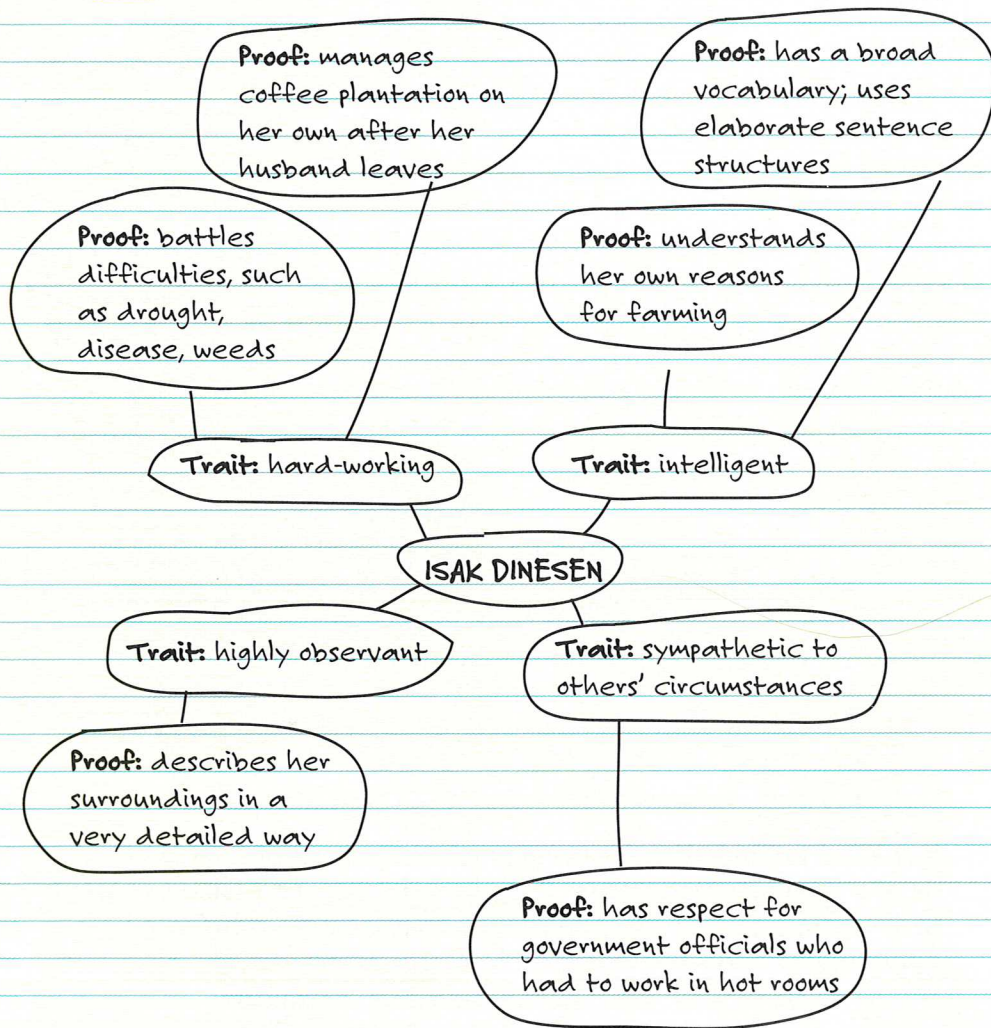 Proof: manages
coffee plantation on
her own after her
husband leaves
Proof: has a broad
vocabulary; uses
elaborate sentence
structures
Proof: battles
difficulties, such
as drought,
disease, weeds
Proof: understands
her own reasons
for farming
Trait: hard-working
Trait: intelligent
ISAK DINESEN
Trait: highly observant
Trait: sympathetic to
others' circumstances
Proof: describes her
surroundings in a
very detailed way
Proof: has respect for
government officials who
had to work in hot rooms